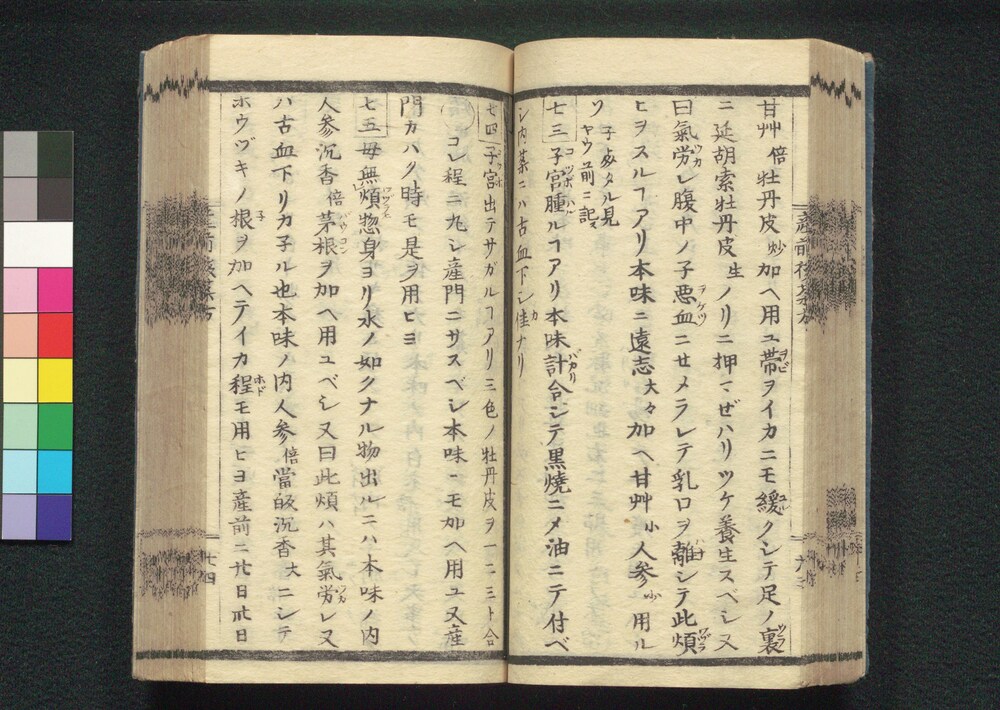 甘艸倍牡丹皮炒加ヘ用ユ帯ヲイカニモ緩クシテ足ノ裏
ニ延胡索牡丹皮生ノリニ押マゼハリツケ養生スベシ又
曰氣労レ腹中ノ子悪血ニセメラレテ乳口ヲ離シテ此煩
ヒヲスルヿアリ本味ニ遠志大々加ヘ甘艸小人参少用ル
ソ子タル見ヤウ前ニ記ス
七三子宮腫ルヿアリ本味計合シテ黒焼ニメ油ニテ付ベ
シ内薬ニハ古血下シ佳ナリ
七四子宮出テサガルヿアリ三色ノ牡丹皮ヲ一ニ三ト合
コレ程ニ丸シ産門ニサスベシ本味ニモ加ヘ用ユ又産
門カハク時モ是ヲ用ヒヨ
七五毋無煩惣身ヨリ水ノ如クナル物出ルニハ本味ノ内
人参沉香倍茅根ヲ加ヘ用ユベシ又曰此煩ハ其氣労レ又
ハ古血下リカ子ル也本味ノ内人参倍當皈沉香大ニシテ
ホウヅキノ根ヲ加ヘテイカ程モ用ヒヨ産前ニ廿日卅日
七四